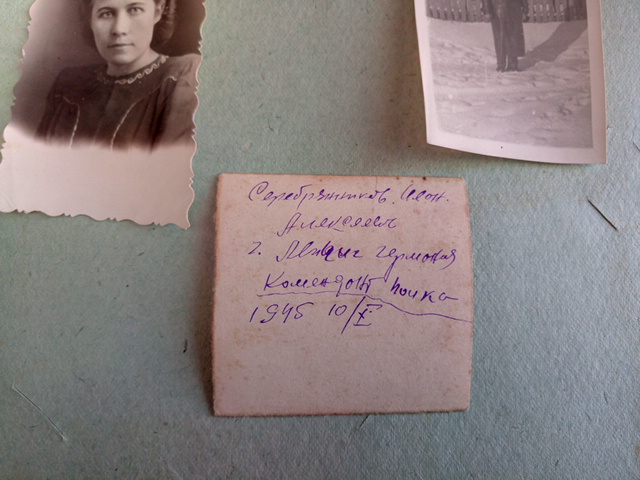 Серебрянников Леон.
Алексеевь
г. Лейпциг германия
Комендант полка
1945 10/X